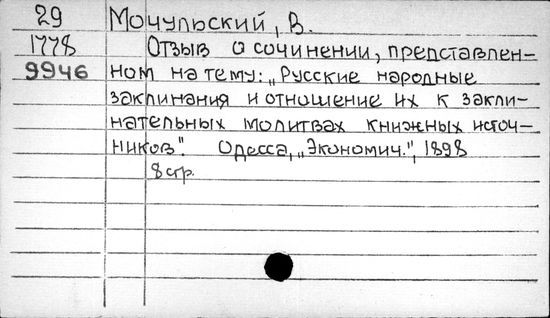 29 Мочульский, В.
1778 Отзыв о сочинении, представлен-
9946 ном на тему: „Русские народные
заклинания и отношение их к закли-
нательных молитвах книжных источ-
ников". Одесса, „Экономич.", 1898
8 стр.